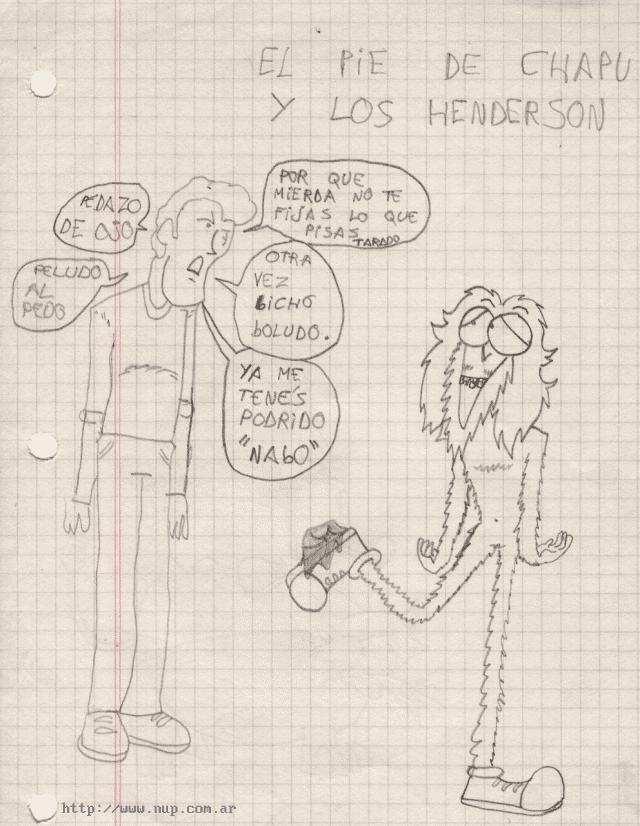 EL PIE DE CHAPU
Y LOS HENDERSON
PEDAZO
DE OJO
POR QUE
MIERDA NO TE
FIJAS LO QUE
PISAS
TARADO
PELUDO
AL
PEDO
OTRA
VEZ
BICHO
BOLUDO.
YA ME
TENÉS
PODRIDO
"NABO"
http://www.nup.com.ar